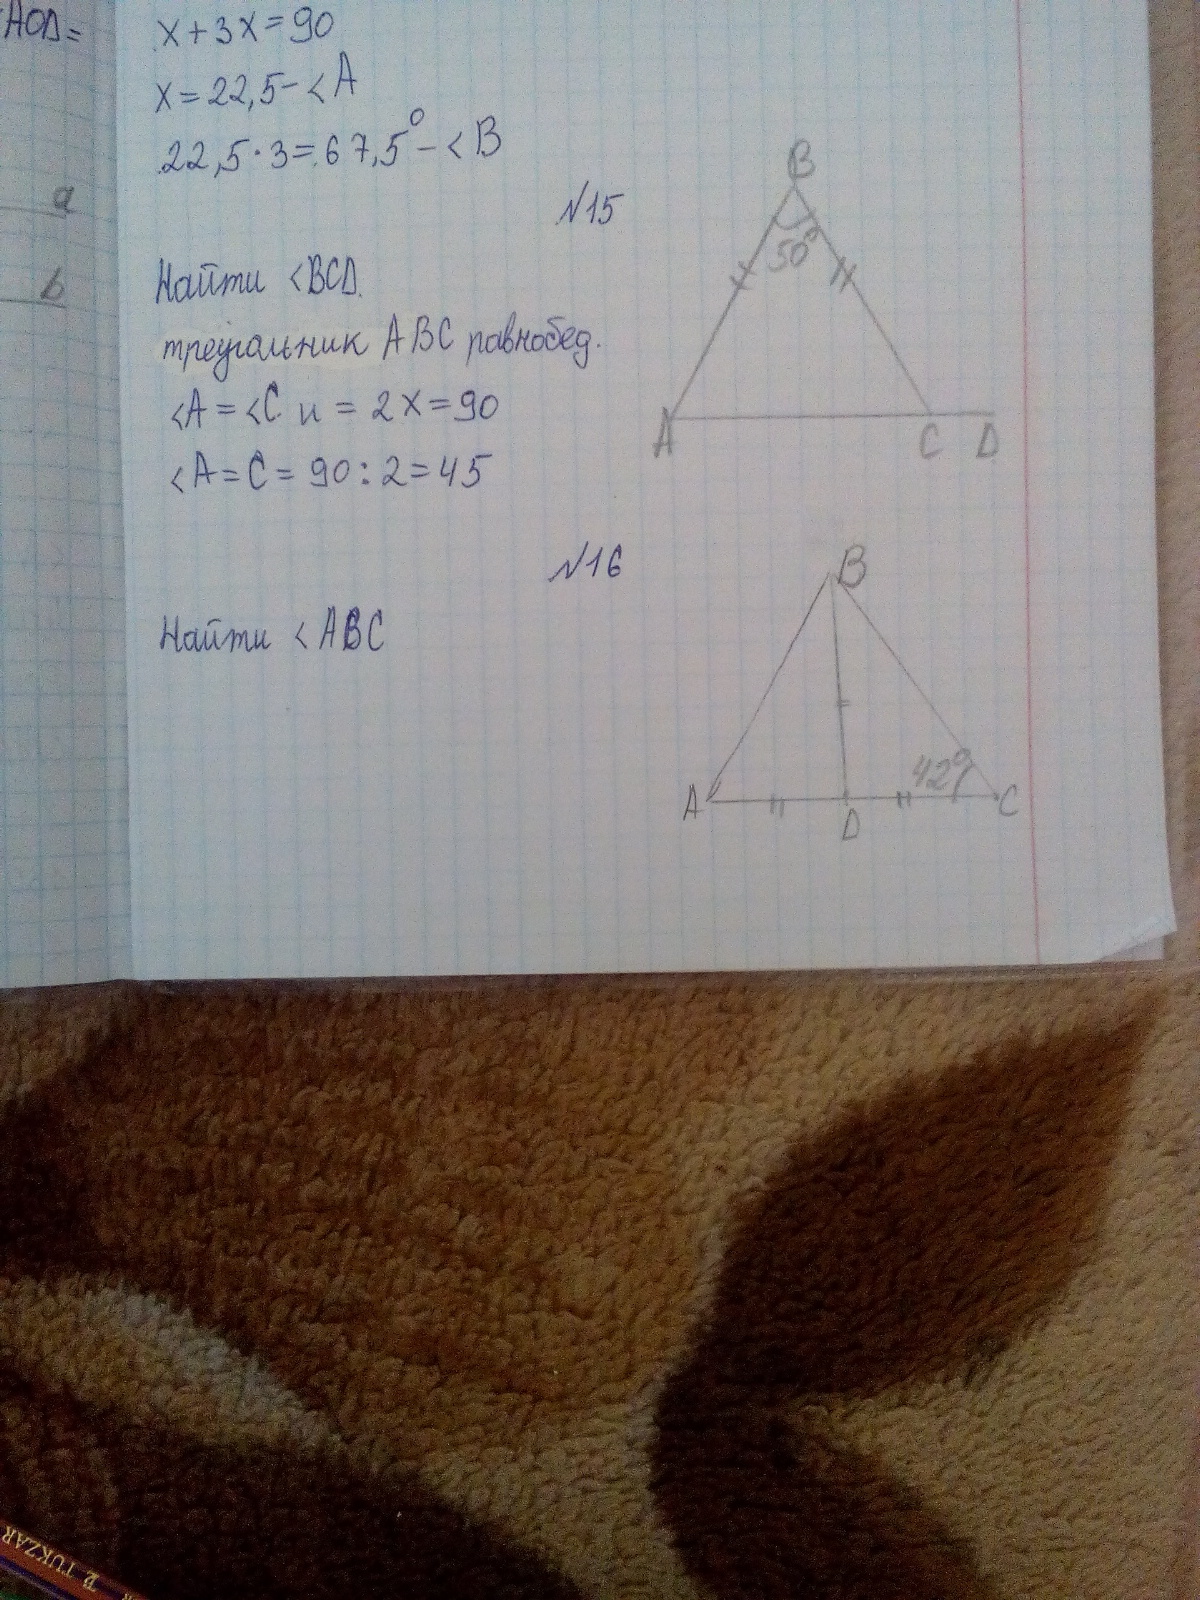 AOD=
a
b
x+3x=90
x=22,5-<A
22,5·3=67,5°-<B
№15
Найти <BCD.
треугольник ABC равнобед.
<A=<C и = 2x=90
<A=C=90:2=45
B
50°
A
C
D
№16
Найти <ABC
B
42°
A
D
C
TUKZAR